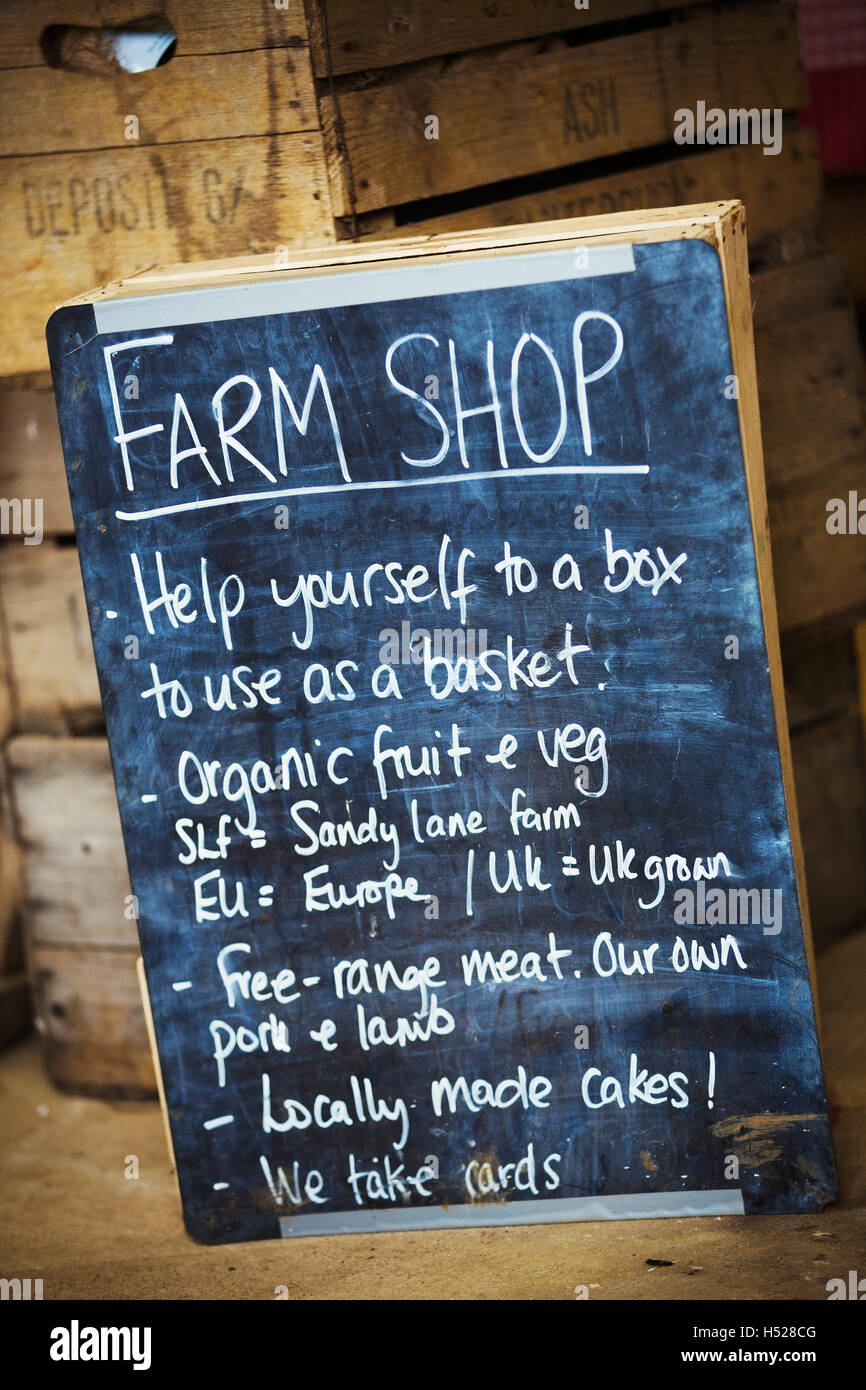 ASH
DEPOSIT 6/
FARM SHOP
- Help yourself to a box
to use as a basket.
- Organic fruit & veg
SLF = Sandy lane farm
EU = Europe / UK = UK grown
- Free-range meat. Our own
pork & lamb
- Locally made cakes!
- We take cards
alamy
Image ID: H528CG
www.alamy.com